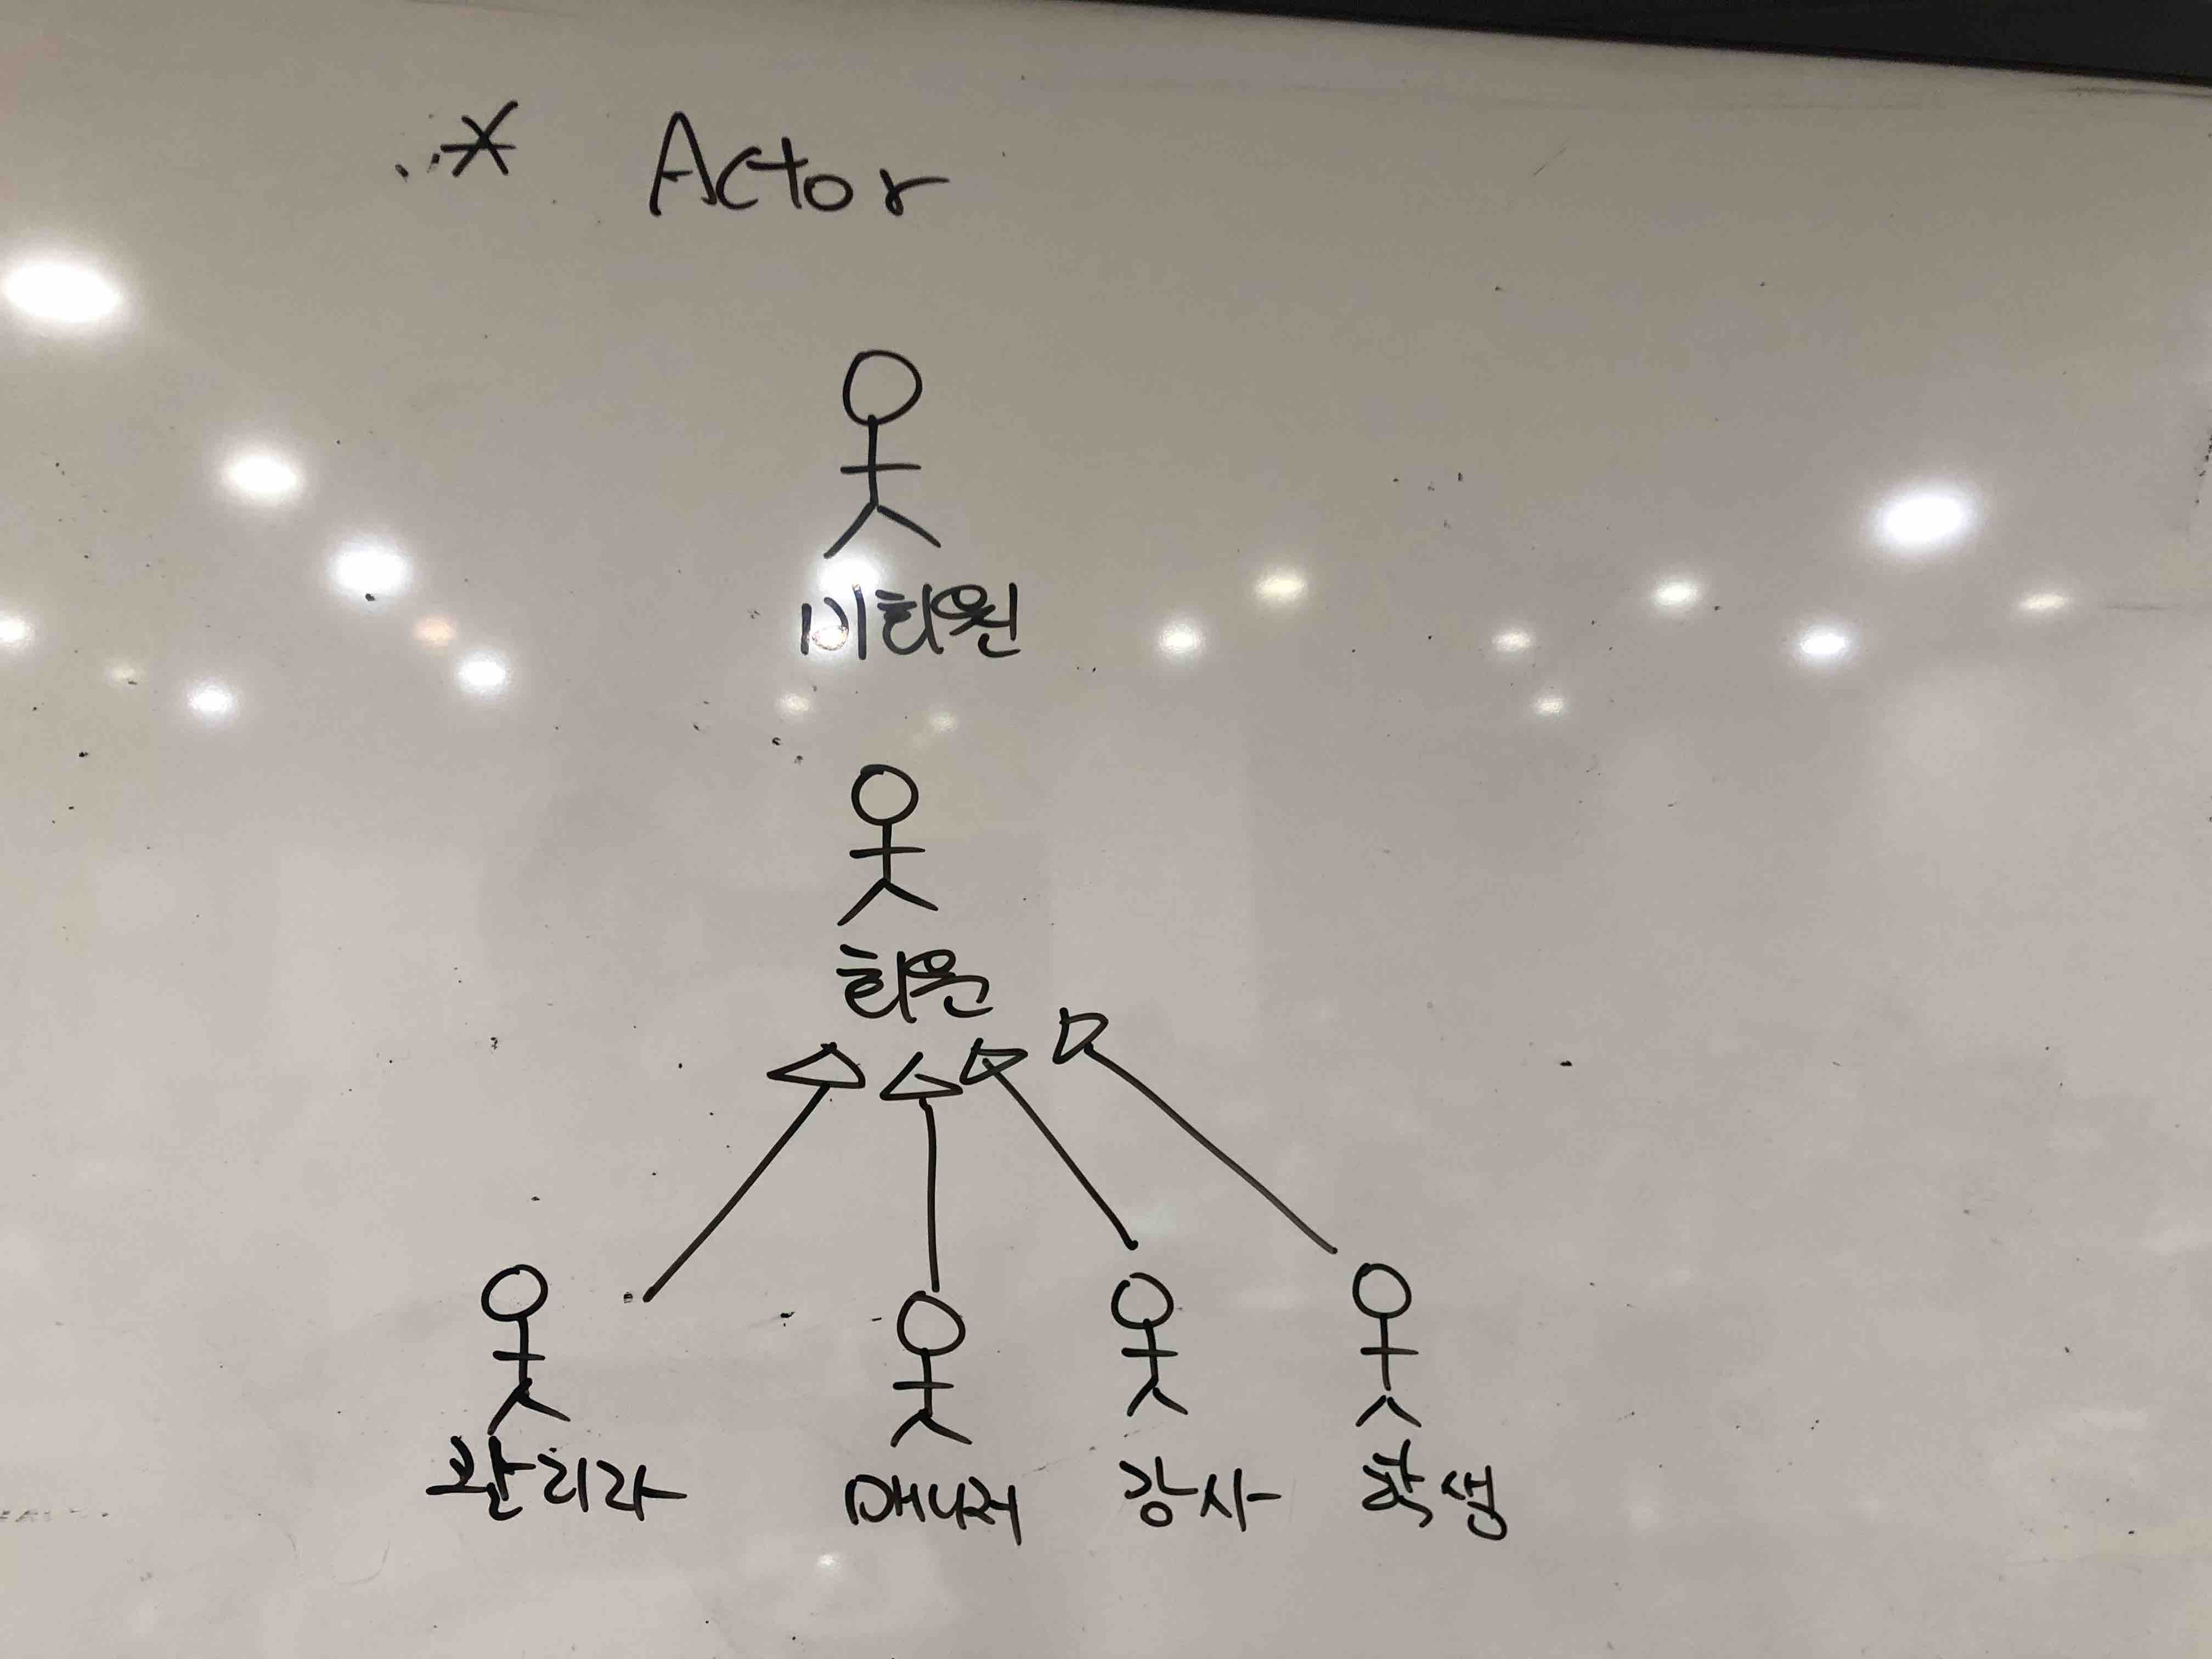 * Actor
비회원
회원
관리자 매니저 강사 학생